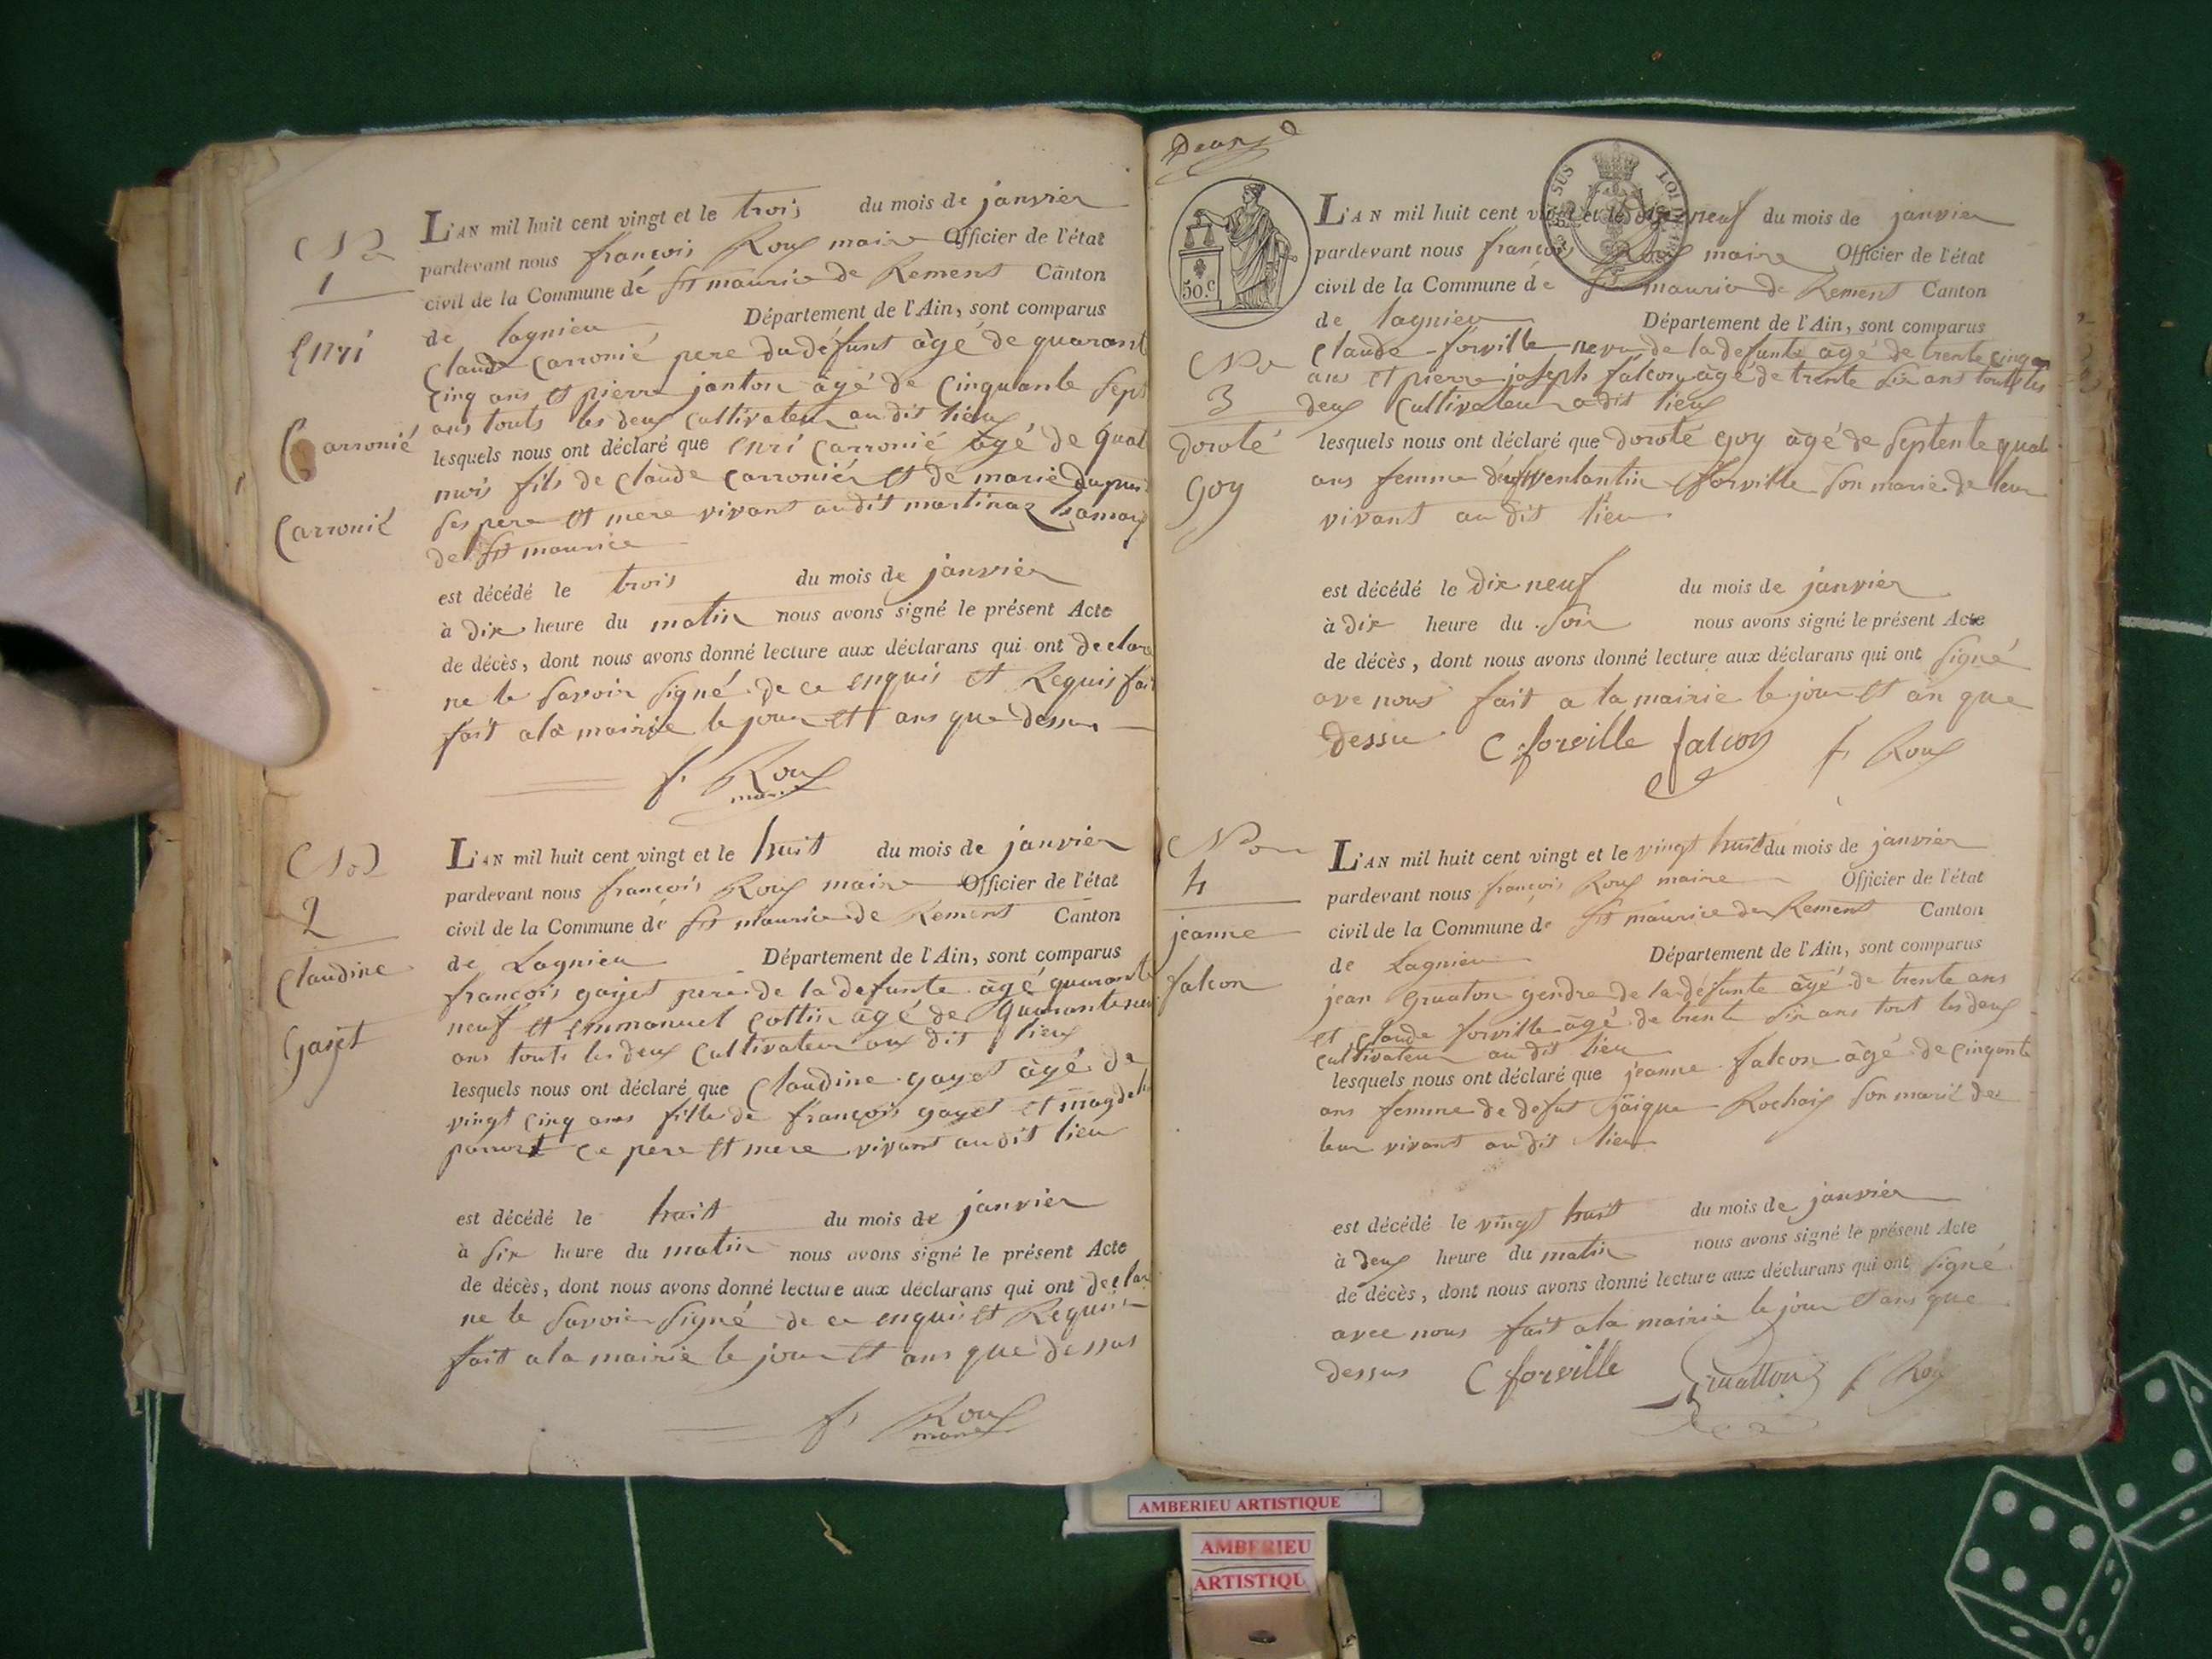 No
1
Enri
Carronié
Carronié
L'AN mil huit cent vingt et le trois du mois de janvier
pardevant nous françois Roux maire Officier de l'état
civil de la Commune de St maurice de Remens Canton
de lagnieu Département de l'Ain, sont comparus
Claude Carronié pere du défunt âgé de quarant
cinq ans et pierre janton âgé de Cinquante Sept
ans touts les deux Cultivateur au dit lieux
lesquels nous ont déclaré que Enri Carronié âgé de quat
mois fils de Claude Carroniér et de marie dupui
Ses pere et mere vivant audit martinaz hamau
de St maurice
est décédé le trois du mois de janvier
à dix heure du matin nous avons signé le présent Acte
de décès, dont nous avons donné lecture aux déclarans qui ont declar
ne le Savoir Signé de ce enquis et Requis fai
fait ala mairie le jour et ans que dessus
f. Roux
maire
No
2
Claudine
Gayet
L'AN mil huit cent vingt et le huit du mois de janvier
pardevant nous françois Roux maire Officier de l'état
civil de la Commune de St maurice de Remens Canton
de Lagnieu Département de l'Ain, sont comparus
françois gayet pere de la defunte âgé quarante
neuf et Emmanuel Cottin âgé de Quarante neu
ans touts les deux Cultivateur aux dit lieux
lesquels nous ont déclaré que Claudine gayet âgé de
vingt cinq ans fille de françois gayet et magdel
Ce pere et mere vivant audit lieu
est décédé le huit du mois de janvier
à Six heure du matin nous avons signé le présent Acte
de décès, dont nous avons donné lecture aux déclarans qui ont declar
ne le Savoir Signé de ce enquis et Requis
fait ala mairie le jour et ans que dessus
f. Roux
maire
Deux
50.c
SUS LOI
No
3
doroté
goy
L'AN mil huit cent vingt et le dix neuf du mois de janvier
pardevant nous françois Roux maire Officier de l'état
civil de la Commune de St maurice de Remens Canton
de lagnieu Département de l'Ain, sont comparus
Claude forville neveu de la defunte âgé de trente cinq
ans et pierre joseph falcon âgé de trente Six ans touts les
deux Cultivateur a dit lieux
lesquels nous ont déclaré que doroté goy âgé de Septente quat
ans femme forville Son marie de leur
vivant au dit lieu
est décédé le dix neuf du mois de janvier
à dix heure du Soir nous avons signé le présent Acte
de décès, dont nous avons donné lecture aux déclarans qui ont Signé
ave nous fait a la mairie le jour et an que
dessu C forville falcon f. Roux
No
4
jeanne
falcon
L'AN mil huit cent vingt et le vingt huit du mois de janvier
pardevant nous françois Roux maire Officier de l'état
civil de la Commune de St maurice de Remens Canton
de Lagnieu Département de l'Ain, sont comparus
jean Gruaton gendre de la défunte âgé de trente ans
et Claude forville âgé de trente Six ans tout les deux
Cultivateur au dit lieu
lesquels nous ont déclaré que jeanne falcon âgé de Cinqante
ans femme de defut jaique Rochaix Son marié de
leur vivant au dit lieu
est décédé le vingt huit du mois de janvier
à deux heure du matin nous avons signé le présent Acte
de décès, dont nous avons donné lecture aux déclarans qui ont Signé
avec nous fait ala mairie le jour et ans que
dessus C forville Gruatton f. Roux
AMBERIEU ARTISTIQUE
AMBERIEU
ARTISTIQU